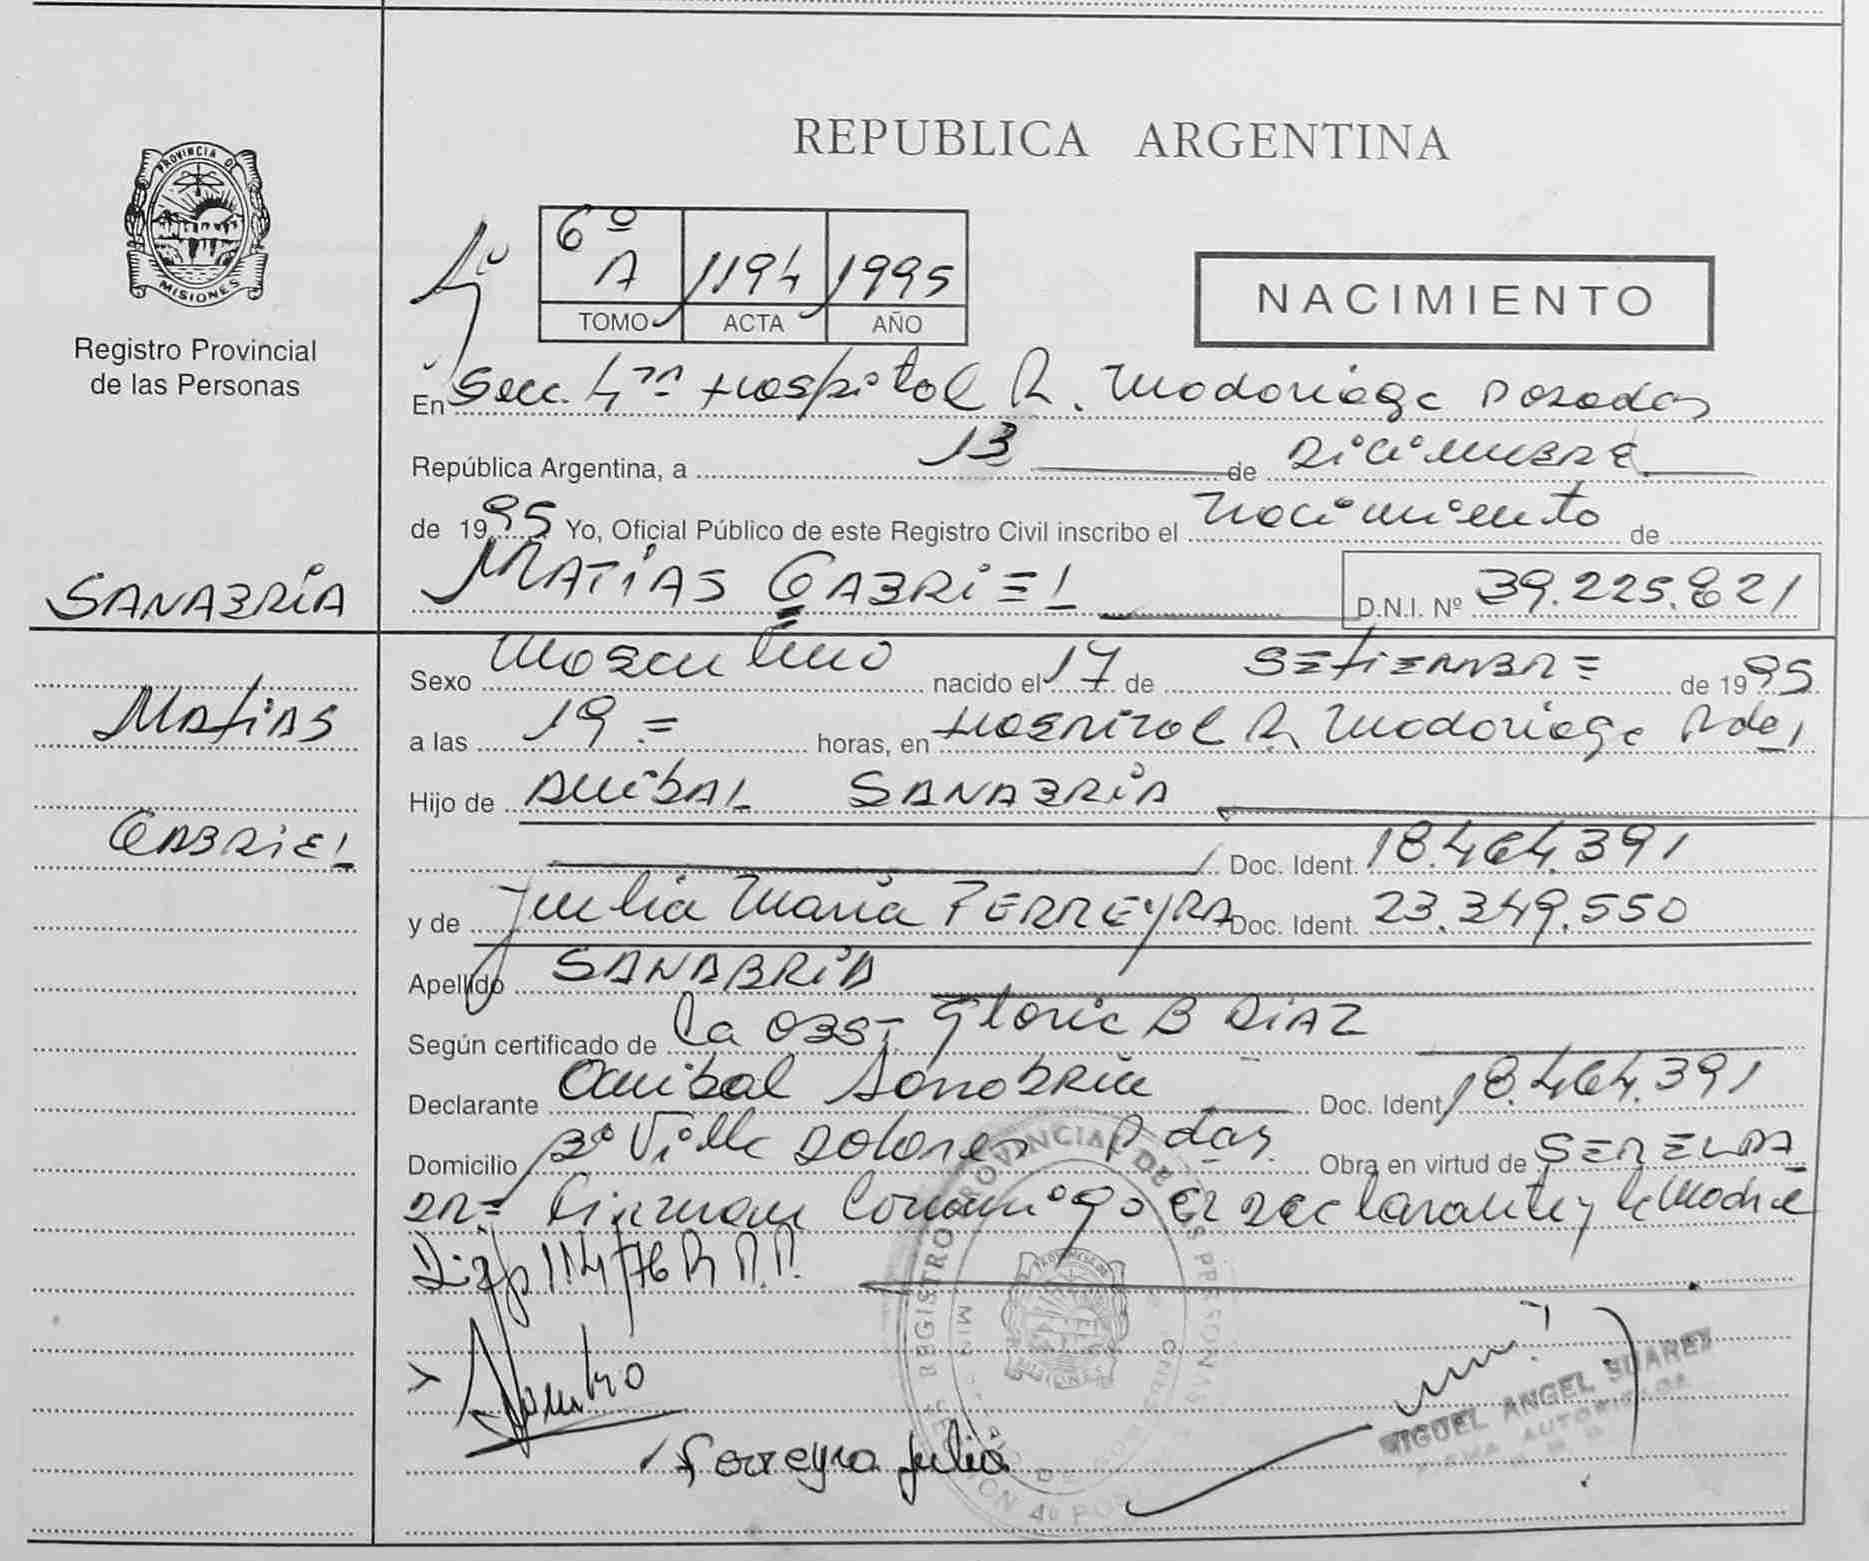 REPUBLICA ARGENTINA
PROVINCIA DE
MISIONES
Registro Provincial
de las Personas
6º
A 1194 1995
TOMO ACTA AÑO
NACIMIENTO
En Secc. 4ta Hospital R. Madariaga Posadas
República Argentina, a 13 de Diciembre
de 1995 Yo, Oficial Público de este Registro Civil inscribo el Nacimiento de
SANABRÍA
MATÍAS GABRIEL D.N.I. Nº 39.225.821
Matías
GABRIEL
Sexo Masculino nacido el 17 de SETIEMBRE de 1995
a las 19 = horas, en Hospital R. Madariaga Pdas
Hijo de Anibal SANABRÍA
Doc. Ident. 18.464.391
y de Julia María FERREYRA Doc. Ident. 23.349.550
Apellido SANABRÍA
Según certificado de la OBST Gloria B DIAZ
Declarante Anibal Sanabria Doc. Ident. 18.464.391
Domicilio Bº Villa Dolores Pdas Obra en virtud de
Firman Conmigo El declarante y la Madre
Disp 114/76 R.P.P.
Ferreyra Julia
MIGUEL ANGEL SUAREZ
FIRMA AUTORIZADA
REGISTRO PROVINCIAL DE LAS PERSONAS